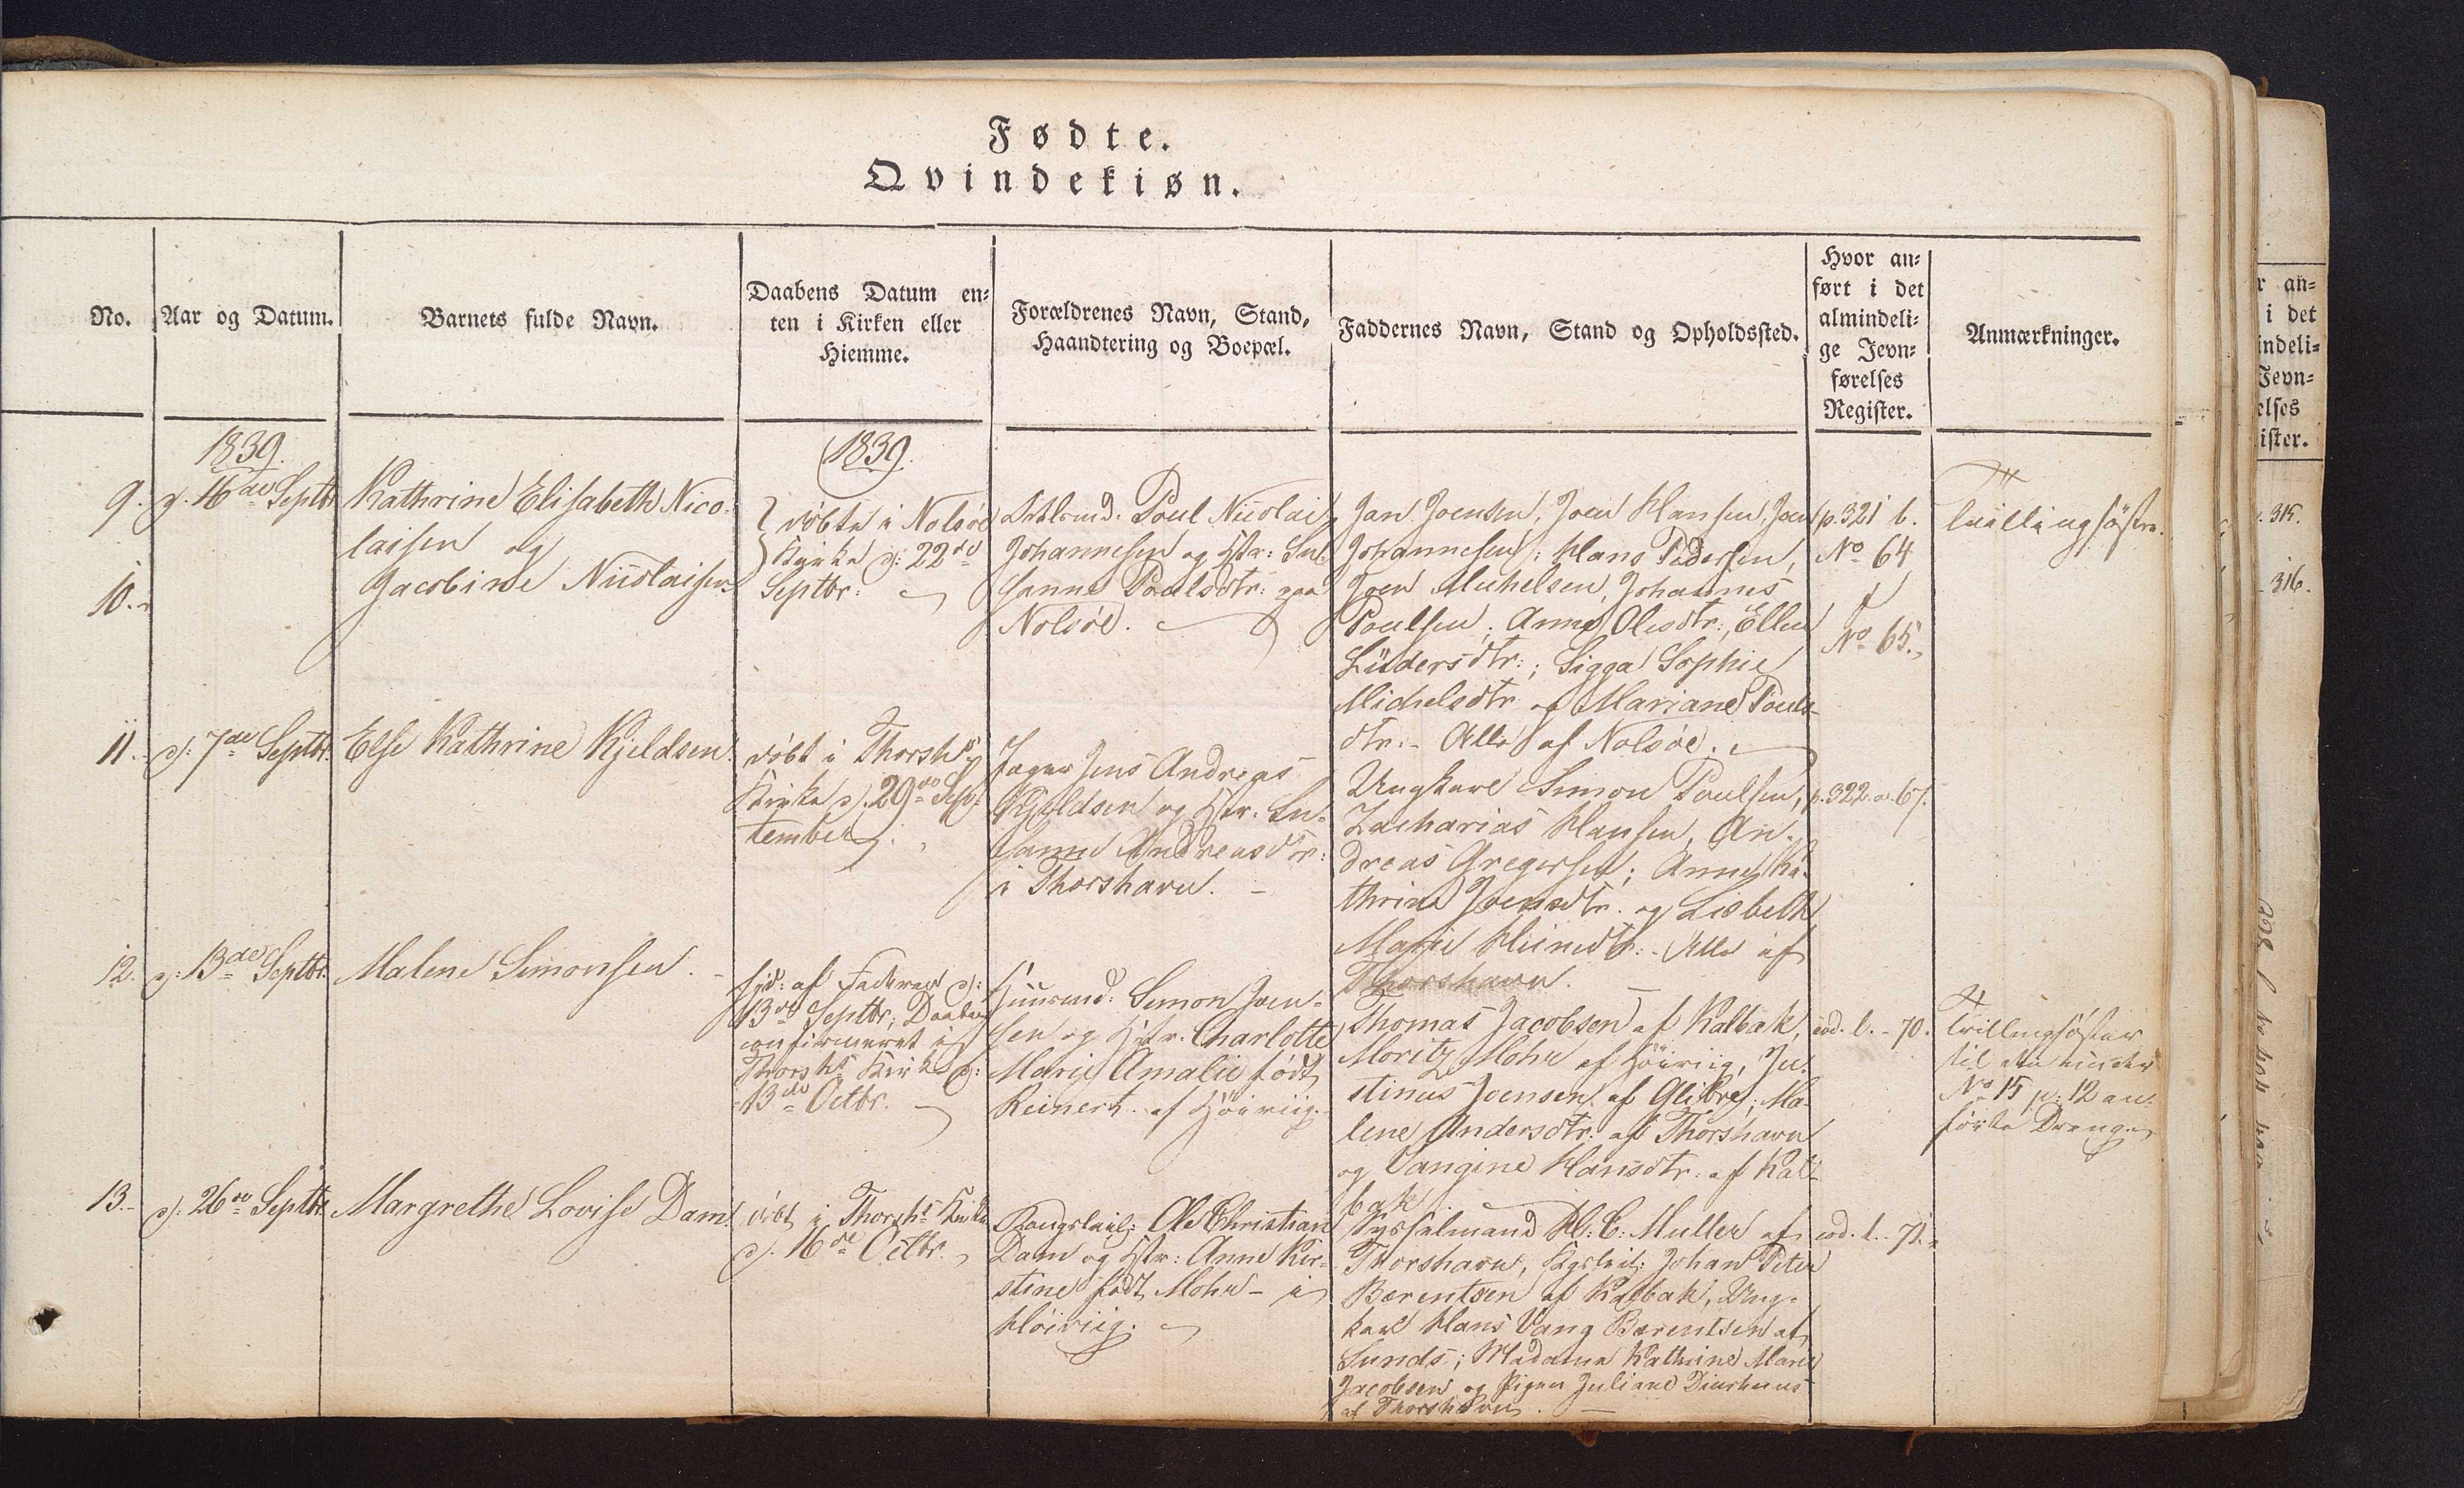 Fødte.
Qvindekiøn.
No.
Aar og Datum.
Barnets fulde Navn.
Daabens Datum en-
ten i Kirken eller
Hiemme.
Forældrenes Navn, Stand,
Haandtering og Boepæl.
Faddernes Navn, Stand og Opholdssted.
Hvor an-
ført i det
almindeli-
ge Jevn-
førelses
Register.
Anmærkninger.
1839.
1839.
9.
d. 16de Septbr
Kathrine Elisabeth Nico-
laisen og
10.
Jacobine Nicolaisen
døbte i Nolsøe
Kirke d: 22de
Septbr:
Poul Nicolai
Johannesen og Hstr: Su-
sanne Poulsdtr: paa
Nolsöe.
Jan Joensen, Joen Hansen, Joen
Johannesen; Hans Pedersen,
Joen Michelsen, Johannes
Poulsen; Anne Olesdtr:, Ellen
Lüdersdtr:; Sigga Sophie
Michelsdtr og Mariane Pouls-
dtr:- Alle af Nolsöe.
p.321 b.
No 64
No 65.
Tvillingsöstre.
11.
d: 7de Septbr.
Else Kathrine Kjeldsen.
döbt i Thorshs
Kirke d. 29de Sep-
tember.
Jens Andreas
Kjeldsen og Hstr. Su-
sanne Andreasdtr:
i Thorshavn.
Ungkarl Simon Poulsen,
Zacharias Hansen, An-
dreas Gregersen; Anne Ka-
thrine Joensdtr. og Lisbeth
Marie Heinesdtr:- Alle af
Thorshavn.
p.322.a.67.
12.
d: 13de Septbr.
Malene Simonsen.
af Faderen d:
13de Septbr; Daaben
confirmeret i
Thorshs Kirke d:
13de Octbr.
Simon Joen-
sen og Hstr. Charlotte
Marie Amalie födt
Reinert af Höiviig.
Thomas Jacobsen af Kalbak,
Moritz Mohr af Höiviig, Ju-
stinus Joensen af Glibre; Ma-
lene Andersdtr: af Thorshavn
og Vangine Hansdtr. af Kal-
bak
eod. l. - 70.
Tvillingsöster
til den under
No 15 p: 12 an-
förte Dreng.
13.
d. 26de Septbr
Margrethe Lovise Dam.
döbt i Thorshs Kirke
d. 16de Octbr.
Ole Christian
Dam og Hstr: Anne Kir-
stine födt Mohr - i
Höiviig.
Sysselmand H: C: Muller af
Thorshavn, Johan Peter
Bærentsen af Kalbak, Ung-
karl Hans Vang Bærentsen af
Sunds; Madame Kathrine Marie
Jacobsen og Pigen Juliane Diurhuus
af Thorshavn.
eod. l. - 71.
r an-
i det
indeli-
Jevn-
elses
ister.
315.
316.